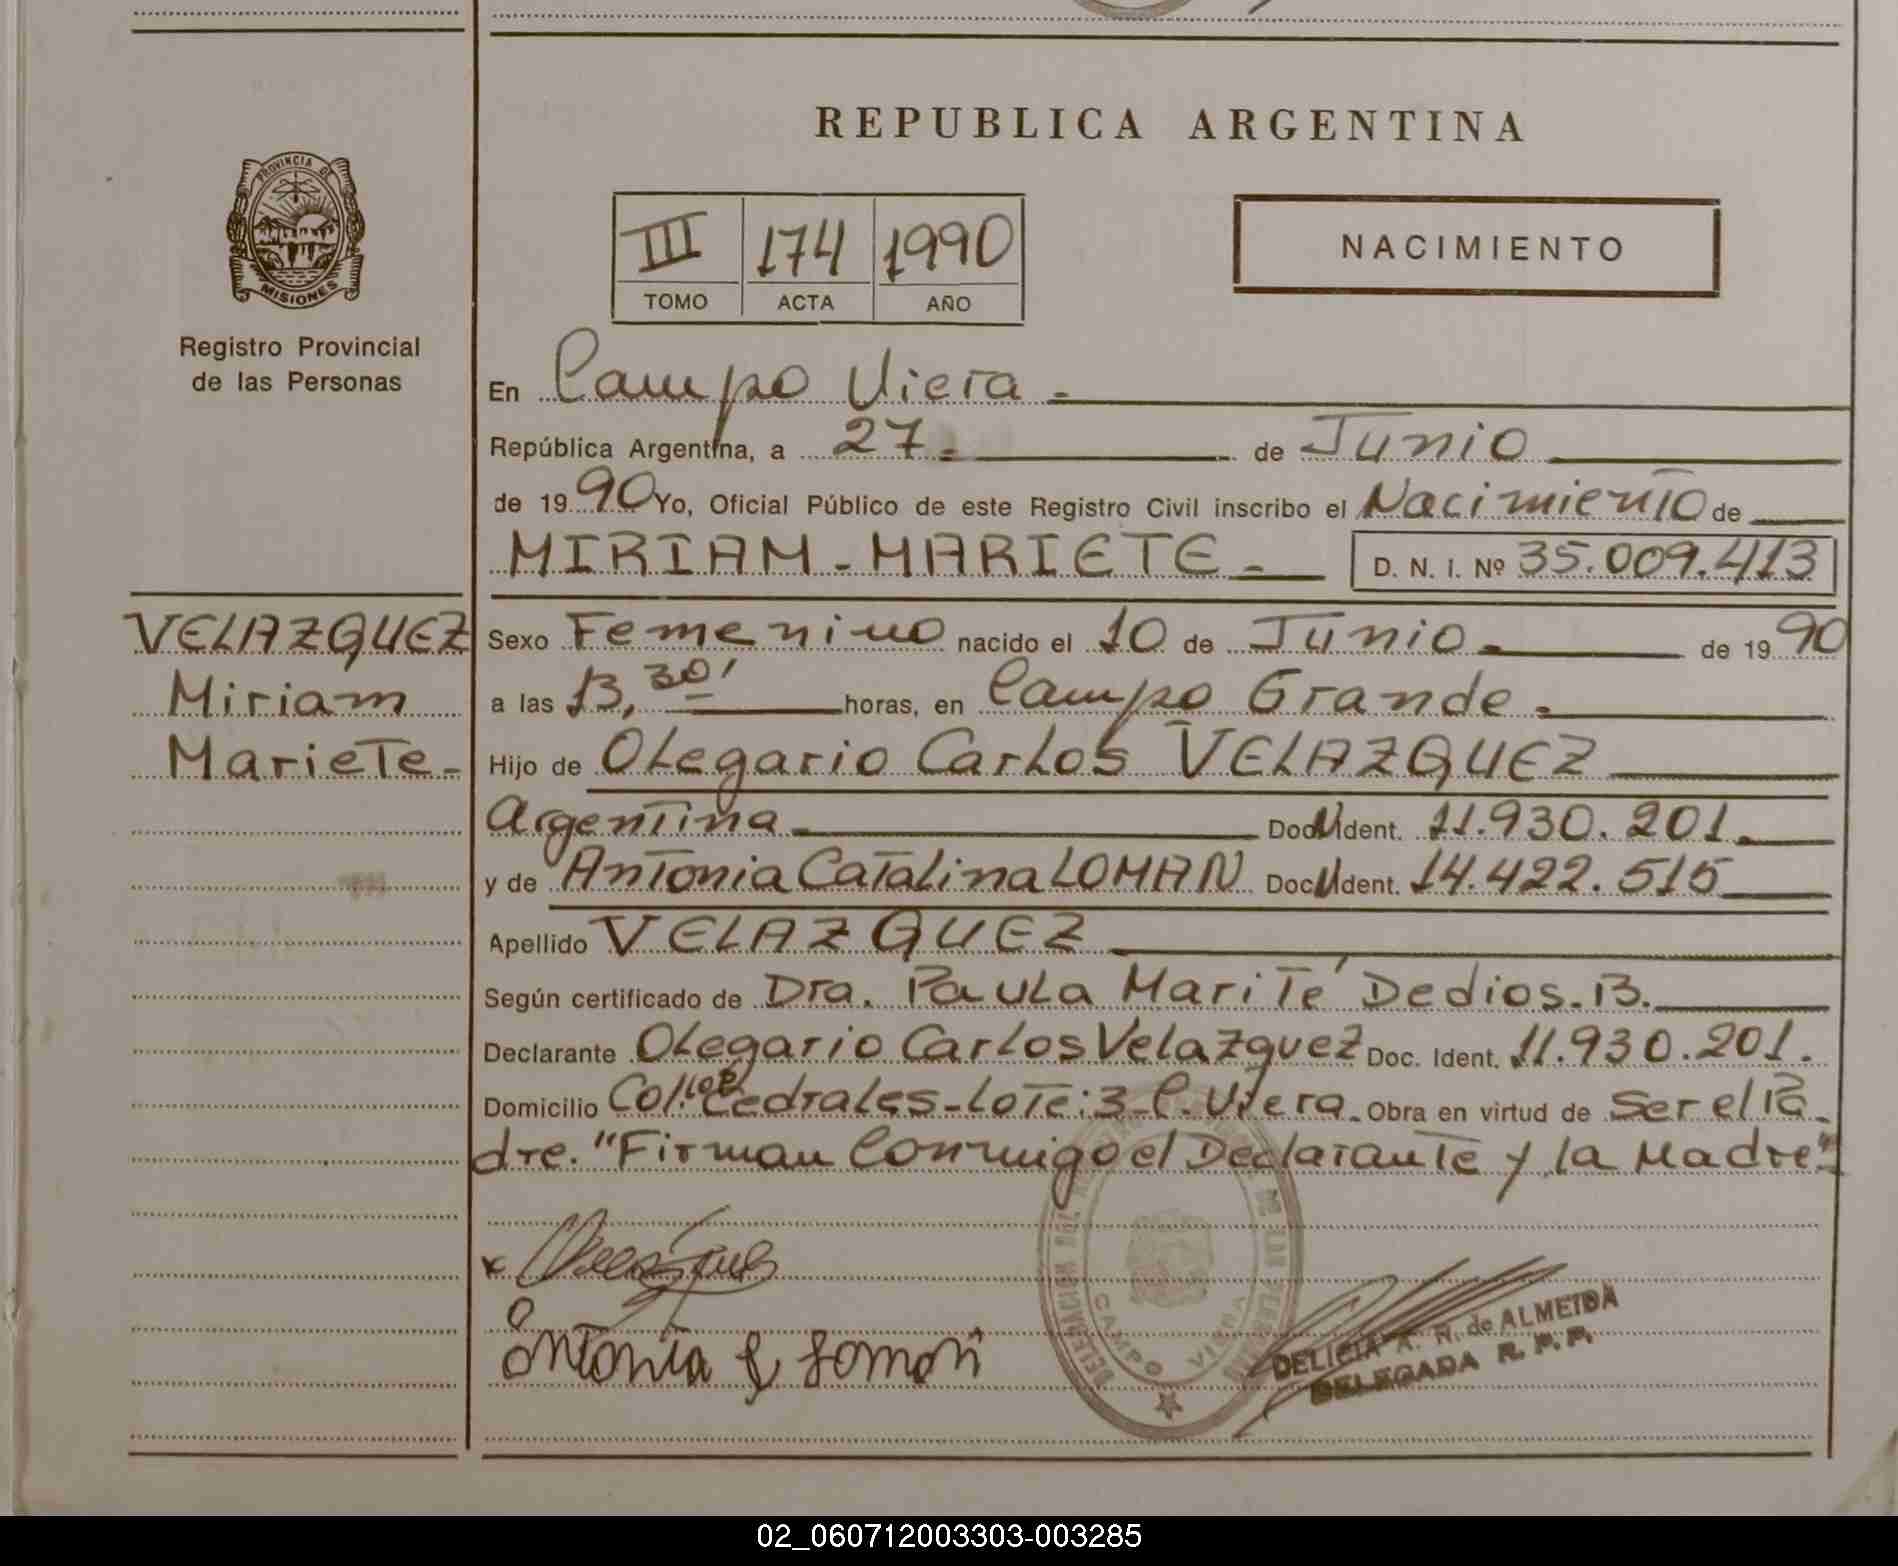 REPUBLICA ARGENTINA
PROVINCIA DE
MISIONES
Registro Provincial
de las Personas
III 174 1990
TOMO ACTA AÑO
NACIMIENTO
En Campo Viera.-
República Argentina, a 27.- de Junio
de 1990 Yo, Oficial Público de este Registro Civil inscribo el Nacimiento de
MIRIAM-MARIETE.- D. N. I. Nº 35.009.413
VELAZQUEZ
Miriam
Mariete.-
Sexo Femenino nacido el 10 de Junio.- de 1990
a las 13,30' horas, en Campo Grande.-
Hijo de Olegario Carlos VELAZQUEZ
Argentina.- Doc. Ident. 11.930.201.-
y de Antonia Catalina LOMAN Doc. Ident. 14.422.515
Apellido VELAZQUEZ
Según certificado de Dra. Paula Marité Dedios.B.
Declarante Olegario Carlos Velazquez Doc. Ident. 11.930.201.
Domicilio Col. Cedrales-Lote:3-C. Viera. Obra en virtud de Ser el Pa-
dre. "Firman Conmigo el Declarante y la Madre"-
x Velazquez
Antonia C Loman
CAMPO VIERA
DELICIA A. R. de ALMEIDA
DELEGADA R. P. P.
02_060712003303-003285